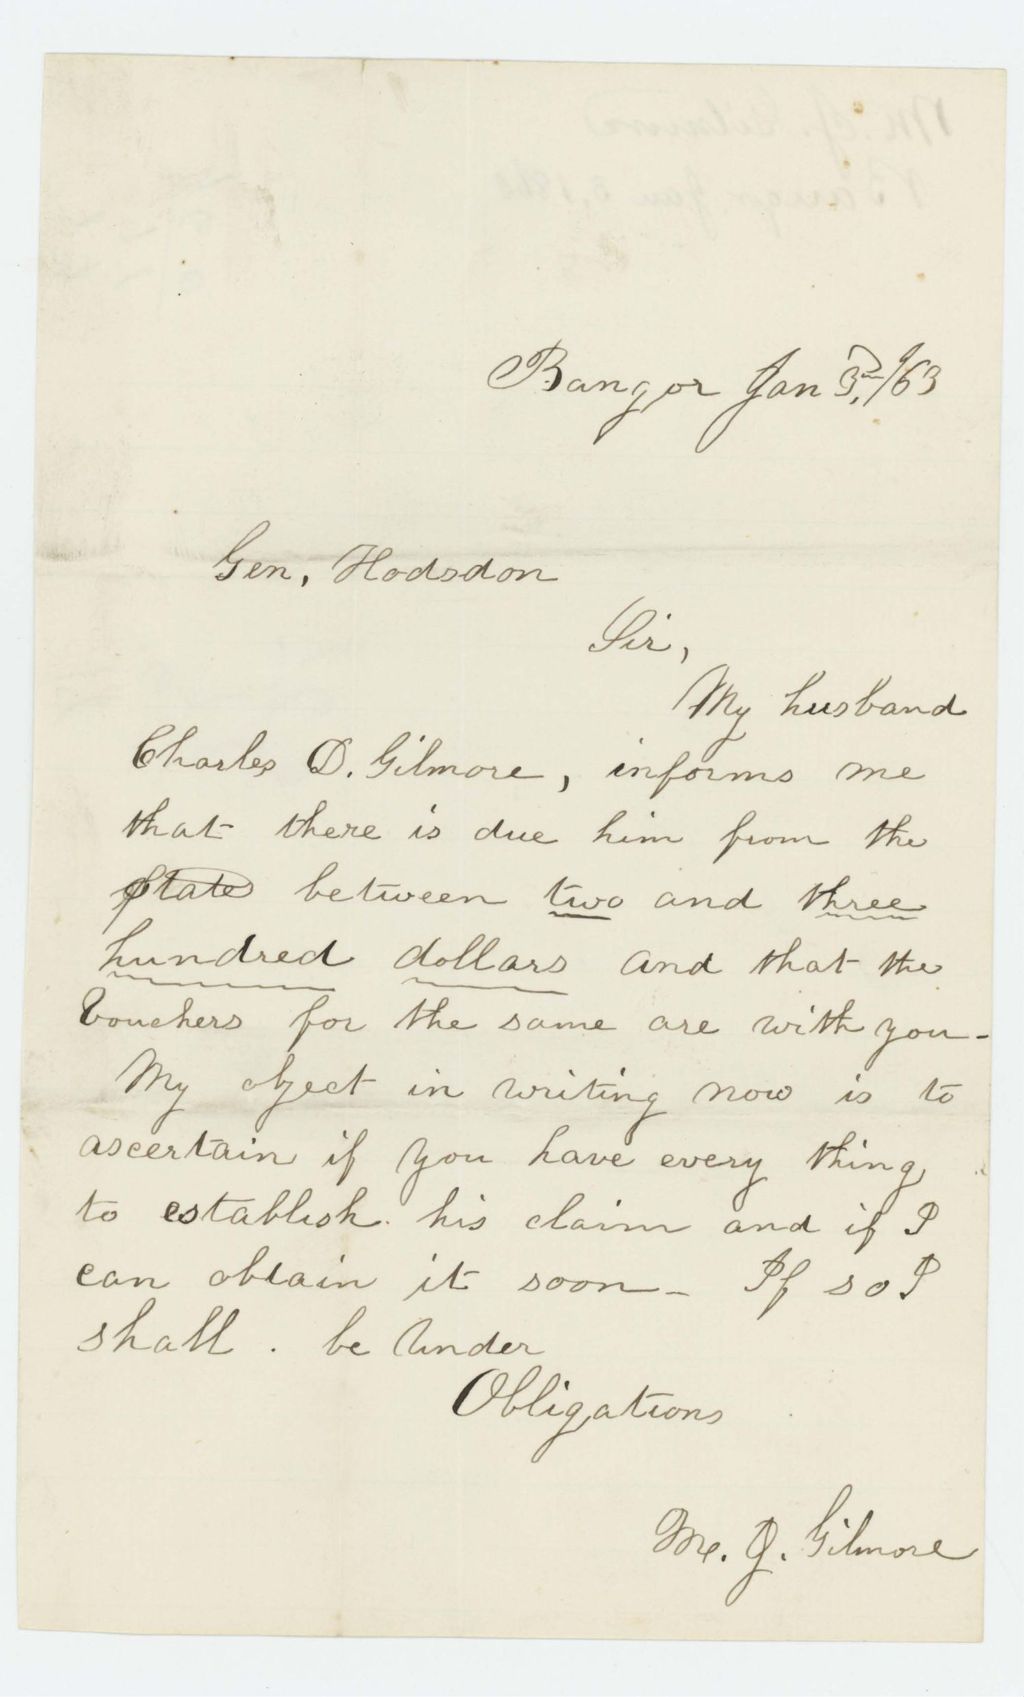 Bangor Jan 3rd, /63
Gen, Hodsdon
Sir,
My husband
Charles D. Gilmore, informs me
that there is due him from the
State between two and three
hundred dollars and that the
Vouchers for the same are with you-
My object in writing now is to
ascertain if you have every thing
to establish his claim and if I
can obtain it soon- If so I
shall . be under
Obligations
M. J. Gilmore